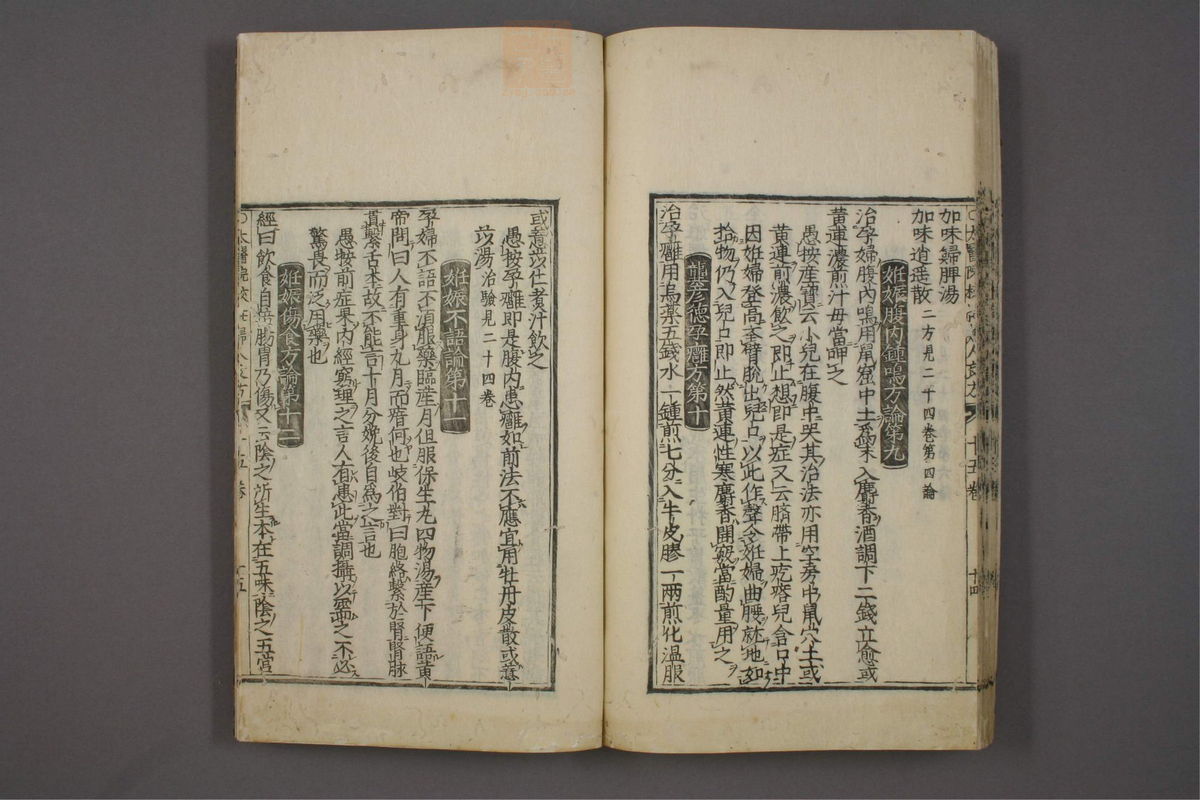 加味歸脾湯
加味逍遥散 二方見二十四卷第四論
妊娠腹内鍾鳴方論第九
治孕婦腹内鳴用鼠窟中土爲末入麝香酒調下二錢立愈或
黄連濃煎汁母當呷之
愚按産寶云小兒在腹中哭其治法亦用空房中鼠穴土或
黄連煎濃飲之即止想即是症又云臍帶上疙瘩兒含口中
因妊婦登高舉臂脱出兒口以此作聲令妊婦曲腰就地如
拾物仍入兒口即止然黄連性寒麝香開竅當酌量用之
龔彦德孕癰方第十
治孕癰用烏藥五錢水一鍾煎七分入牛皮膠一兩煎化温服
或薏苡仁煮汁飲之
愚按孕癰即是腹内患癰如前法不應宜用牡丹皮散或薏
苡湯 治驗見二十四卷
妊娠不語論第十一
孕婦不語不須服藥臨産月但服保生丸四物湯産下便語黄
帝問曰人有重身九月而瘖何也岐伯對曰胞絡繫於腎腎脉
貫繫舌本故不能言十月分娩後自爲之言也
愚按前症果内經窮理之言人有患此當調攝以需之不必
驚畏而泛用藥也
妊娠傷食方論第十二
經曰飲食自倍腸胃乃傷又云陰之所生本在五味陰之五宮